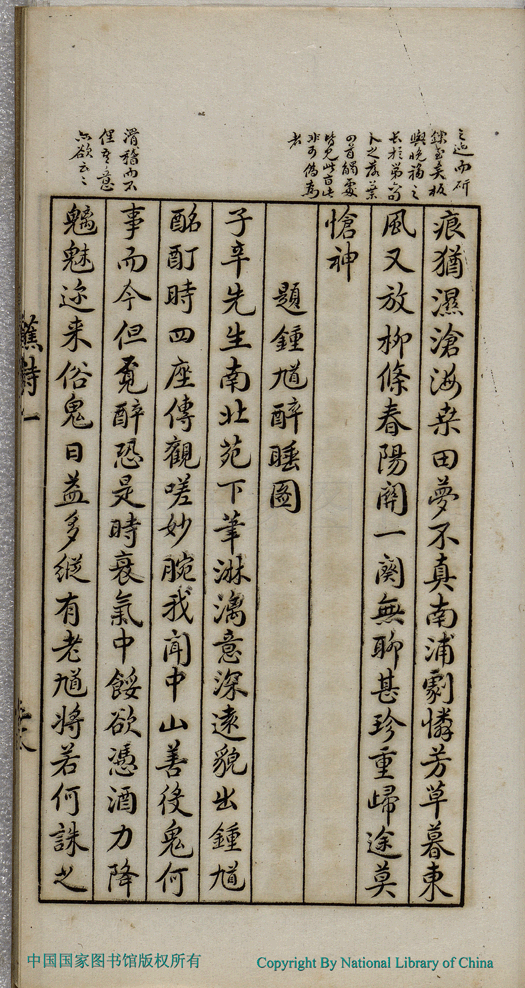 之迹而研
鍊至矣板
輿晚福之
卜之落葉
四首觸處
非可偽為
者
滑稽而不
俚
亦欲云云
痕猶濕滄海桒田夢不真南浦劇憐芳草暮東
風又放柳條春陽關一闋無聊甚珍重歸途莫
愴神
題鍾馗醉睡圖
子辛先生南北苑下筆淋漓意深遠貌出鍾馗
酩酊時四座傳觀嗟妙腕我聞中山善役鬼何
事而今但覔醉恐是時衰氣中餒欲憑酒力降
魑魅迩来俗鬼日益多縱有老馗將若何誅之
中国国家图书馆版权所有
Copyright By National Library of China